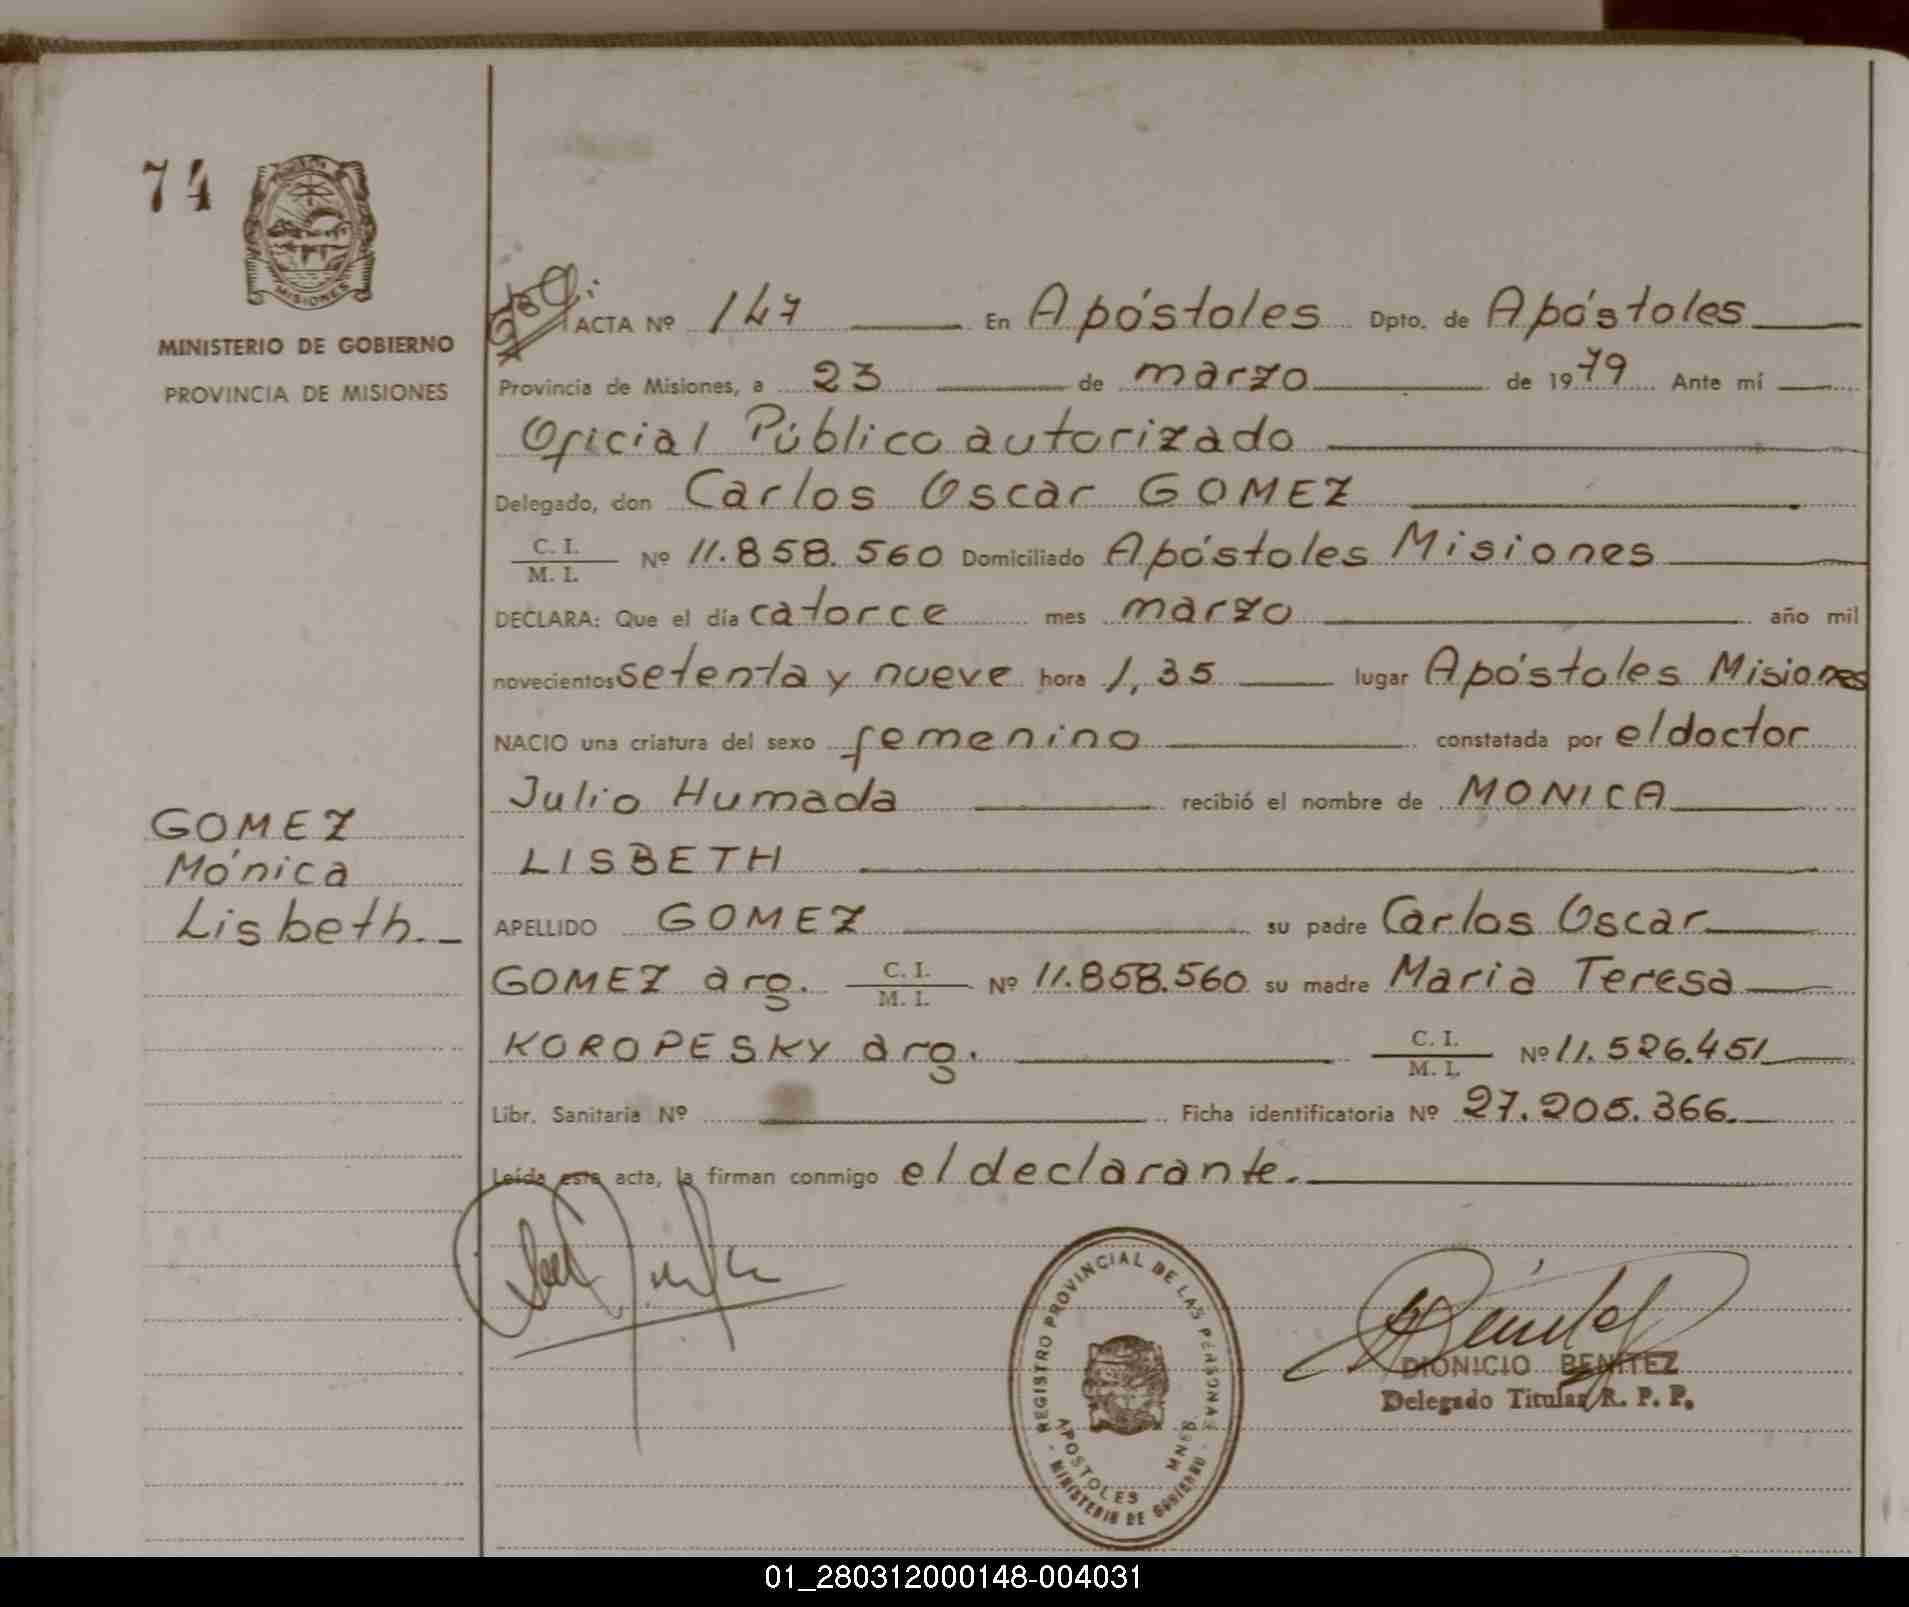 74
MISIONES
MINISTERIO DE GOBIERNO
PROVINCIA DE MISIONES
GOMEZ
Mónica
Lisbeth.
ACTA Nº 147 En Apóstoles Dpto. de Apóstoles
Provincia de Misiones, a 23 de marzo de 1979 Ante mí
Oficial Público autorizado
Delegado, don Carlos Oscar GOMEZ
C. I.
M. I. Nº 11.858.560 Domiciliado Apóstoles Misiones
DECLARA: Que el día catorce mes marzo año mil
novecientos setenta y nueve hora 1,35 lugar Apóstoles Misiones
NACIO una criatura del sexo femenino constatada por el doctor
Julio Humada recibió el nombre de MONICA
LISBETH
APELLIDO GOMEZ su padre Carlos Oscar
GOMEZ arg. C. I. M. I. Nº 11.858.560 su madre Maria Teresa
KOROPESKY arg. C. I. M. I. Nº 11.526.451
Libr. Sanitaria Nº Ficha identificatoria Nº 27.205.366.
Leída esta acta, la firman conmigo el declarante.
REGISTRO PROVINCIAL DE LAS PERSONAS
APOSTOLES MNES
MINISTERIO DE GOBIERNO
DIONICIO BENITEZ
Delegado Titular R. P. P.
01_280312000148-004031